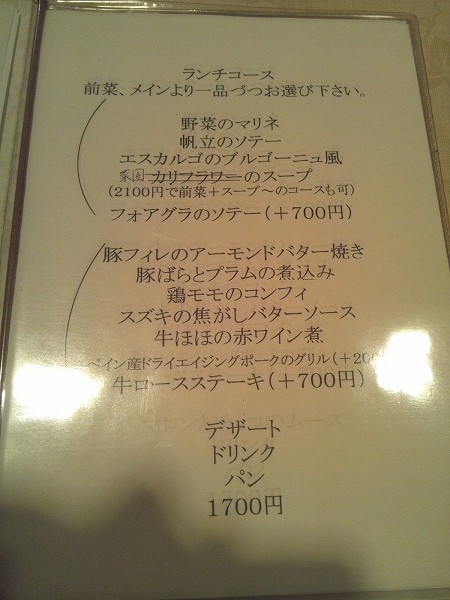 ランチコース
前菜、メインより一品づつお選び下さい。
野菜のマリネ
帆立のソテー
エスカルゴのブルゴーニュ風
カリフラワーのスープ
(2100円で前菜+スープ～のコースも可)
フォアグラのソテー(+700円)
豚フィレのアーモンドバター焼き
豚ばらとプラムの煮込み
鶏モモのコンフィ
スズキの焦がしバターソース
牛ほほの赤ワイン煮
ペイン産ドライエイジングポークのグリル(+200
牛ロースステーキ(+700円)
デザート
ドリンク
パン
1700円